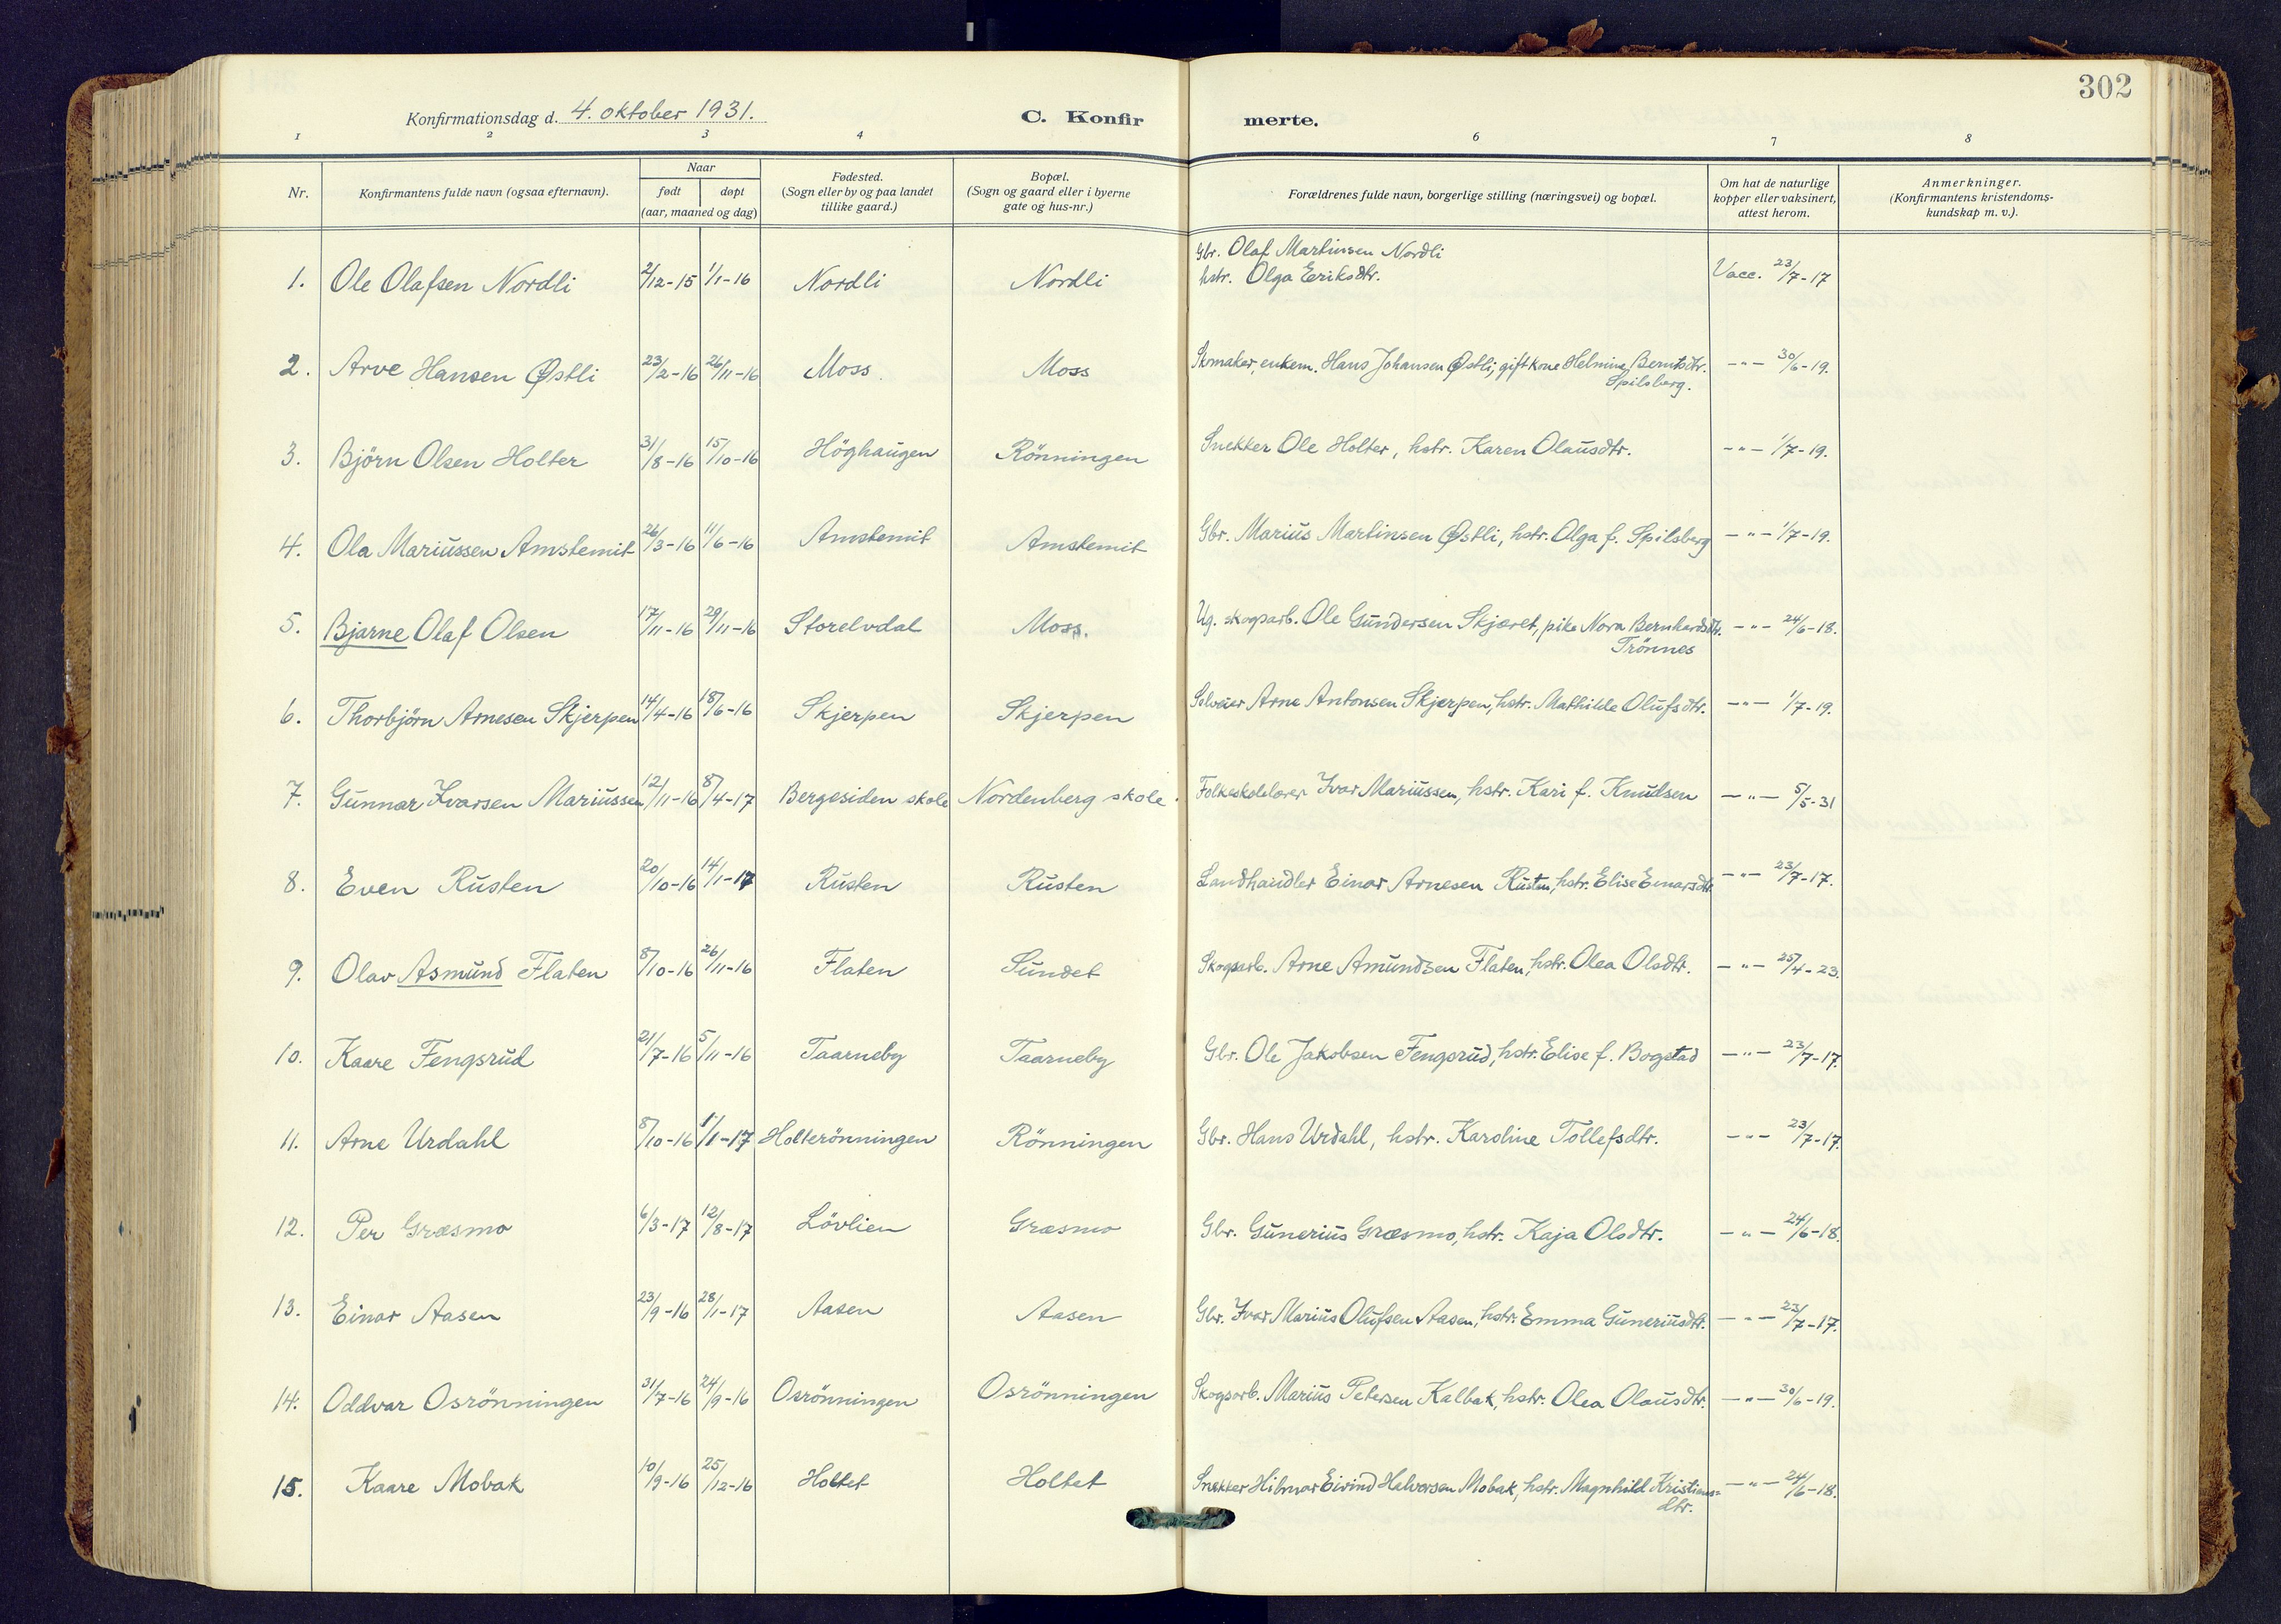 302
Konfirmationsdag d. 4. oktober 1931. C. Konfirmerte.
1 2 3 4 6 7 8
Nr. Konfirmantens fulde navn (ogsaa efternavn). Naar født døpt (aar, maaned og dag) Fødested. (Sogn eller by og paa landet tillike gaard.) Bopæl. (Sogn og gaard eller i byerne gate og hus-nr.) Forældrenes fulde navn, borgerlige stilling (næringsvei) og bopæl. Om hat de naturlige kopper eller vaksinert, attest herom. Anmerkninger. (Konfirmantens kristendoms-kundskap m. v.).
1. Ole Olafsen Nordli 2/12-15 1/1-16 Nordli Nordli Gbr. Olaf Martinsen Nordli
hstr. Olga Eeriksdtr. Vacc. 23/7-17
2. Arve Hansen Østli 23/2-16 26/11-16 Moss Moss Skomaker, enkem. Hans Johansen Østli, gift kone Helmine Berntsdtr. -"- 30/6-19.
Spilsberg.
3. Björn Olsen Holter 31/8-16 15/10-16 Höghaugen Rönningen Snekker Ole Holter, hstr. Karen Olausdtr. -"- 1/7-19.
4. Ola Mariussen Amstemit 26/3-16 11/6-16 Amstemit Amstemit Gbr. Marius Martinsen Østli, hstr. Olga f. Spilsberg -"- 1/7-19.
5. Bjarne Olaf Olsen 17/11-16 29/11-16 Storelvdal Moss. Ug. skogsarb. Ole Gundersen Skjæret, pike Nora Bernhardsdtr. -"- 24/6-18.
Trönnes
6. Thorbjörn Arnesen Skjerpen 14/4-16 18/6-16 Skjerpen Skjerpen Selveier Arne Antonsen Skjerpen, hstr. Mathilde Olufsdtr. -"- 1/7-19.
7. Gunnar Ivarsen Mariussen 12/11-16 8/4-17 Bergesiden skole Nordenberg skole. Folkeskolelærer Ivar Mariussen, hstr. Kari f. Knudsen -"- 5/5-31
8. Even Rusten 20/10-16 14/1-17 Rusten Rusten Landhandler Einar Arnesen Rusten, hstr. Elise Einarsdtr. -"- 23/7-17.
9. Olav Asmund Flaten 8/10-16 26/11-16 Flaten Sundet Skogsarb. Arne Amundsen Flaten, hstr. Olea Olsdtr. -"- 25/4-23.
10. Kaare Fengsrud 21/7-16 5/11-16 Taarneby Taarneby Gbr. Ole Jakobsen Fengsrud, hstr. Elise f. Bogstad -"- 23/7-17.
11. Arne Urdahl 8/10-16 1/1-17 Holterönningen Rönningen Gbr. Hans Urdahl, hstr. Karoline Tollefsdtr. -"- 23/7-17.
12. Per Græsmo 6/3-17 12/8-17 Lövlien Græsmo Gbr. Gunerius Græsmo, hstr. Kaja Olsdtr. -"- 24/6-18.
13. Einar Aasen 23/9-16 28/1-17 Aasen Aasen Gbr. Ivar Marius Olufsen Aasen, hstr. Emma Guneriusdtr. -"- 23/7-17.
14. Oddvar Osrönningen 31/7-16 24/9-16 Osrönningen Osrönningen Skogsarb. Marius Petersen Kalbak, hstr. Olea Olausdtr. -"- 30/6-19.
15. Kaare Mobak 10/9-16 25/12-16 Holtet Holtet Snekker Hilmar Eivind Halvorsen Mobak, hstr. Magnhild Kristians= -"- 24/6-18.
dtr.